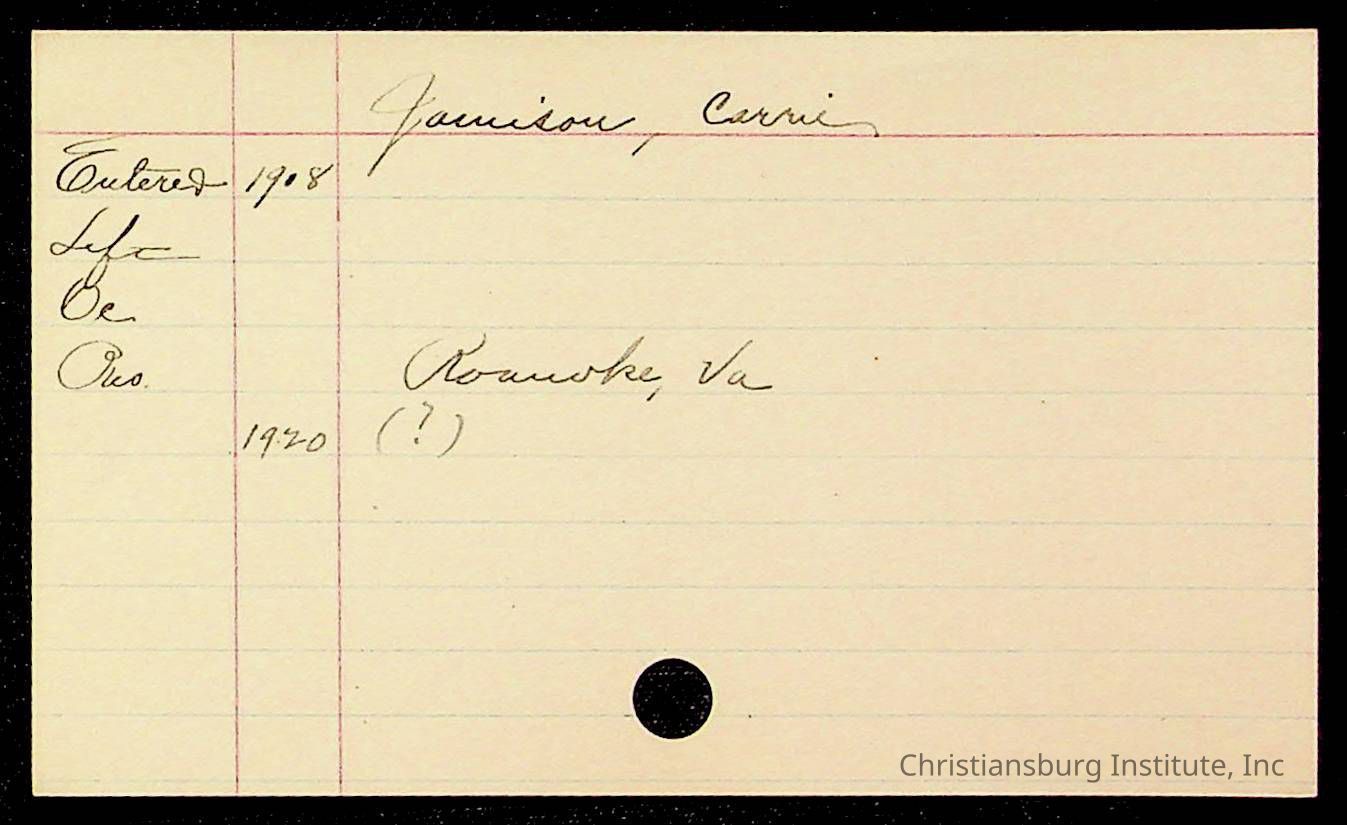 Jamison, Carrie
Entered 1908
Left
Oc
Res. Roanoke, Va
1920 (?)
Christiansburg Institute, Inc